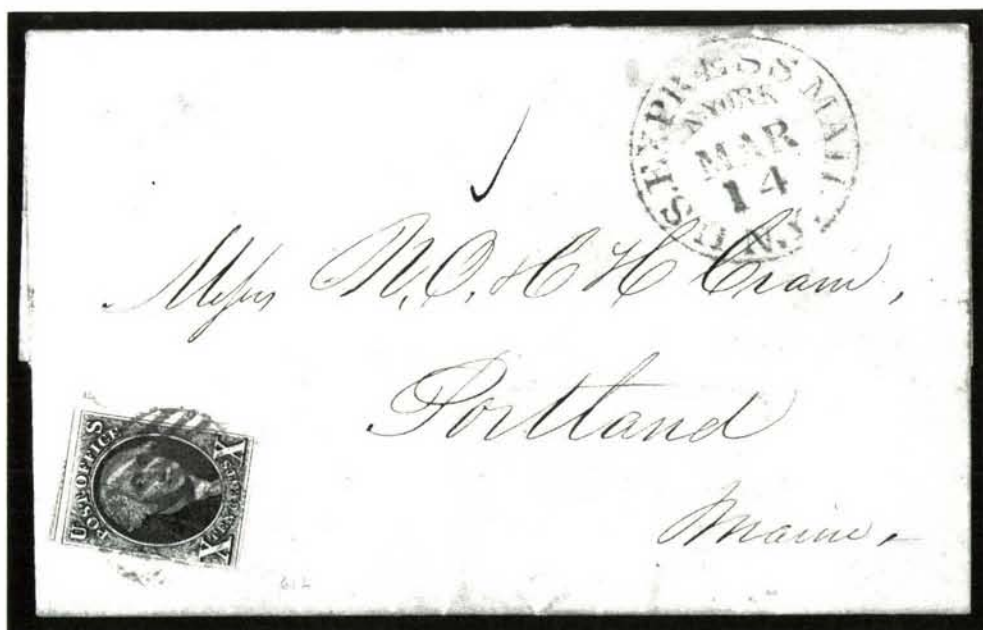 U.S. EXPRESS MAIL
N. YORK
MAR
14
N.Y.
Messrs N. O. & H H Cram,
Portland
Maine,
U S
POST OFFICE
X TEN CENTS X